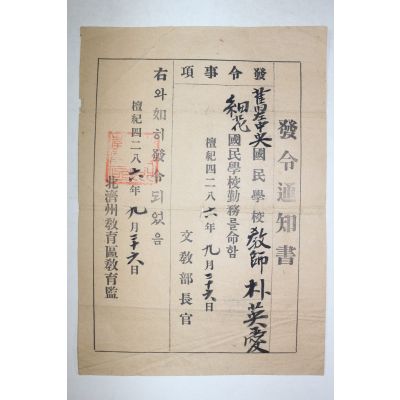 發令通知書
發令事項
舊星中央國民學校 教師 朴英愛
細花國民學校勤務를命함
檀紀四二八六年九月二十六日
文敎部長官
右와如히發令되었음
檀紀四二八六年九月二十六日
北濟州敎育區敎育監